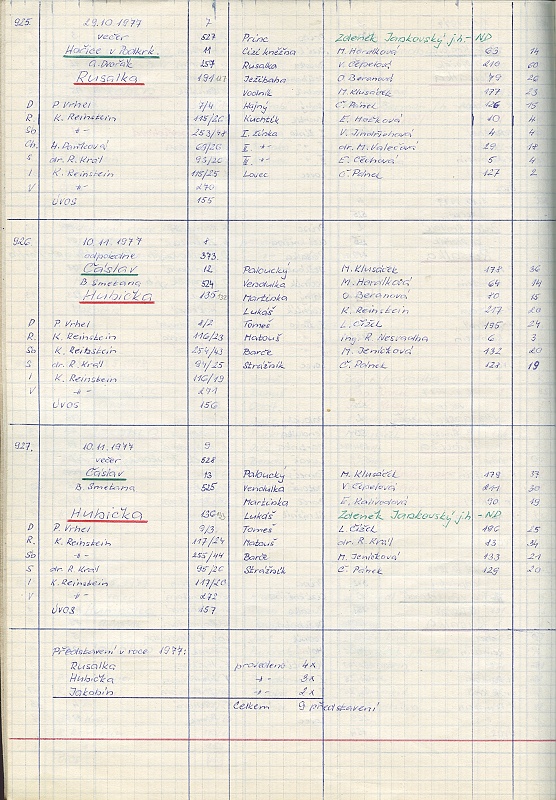 925. 29.10.1977 7
večer 527 Princ Zdeněk Jankovský j.h. - ND
Hořice v Podkrk. 11 Cizí kněžna M. Horálková 63 14
A. Dvořák 257 Rusalka V. Čepelová 210 60
Rusalka 191 Ježibaba O. Beranová 79 26
Vodník M. Klusáček 177 23
D P. Vrhel 7/4 Hajný Č. Pánek 126 15
R K. Reinstein 115/20 Kuchtík E. 10 4
Sb -"- 253/42 I. žínka V. 4 4
Ch. H. 65/20 II -"- dr. M. Valečová 29 18
S dr. R. Král 93/20 III -"- E. Čechová 5 4
I K. Reinstein 115/25 Lovec Č. Pánek 127 2
V -"- 270
Úvos 155
926. 10.11.1977 8
odpoledne 373
Čáslav 12 Paloucký M. Klusáček 178 36
B. Smetana 524 Vendulka M. Horálková 64 14
Hubička 135 Martinka O. Beranová 10 15
Lukáš K. Reinstein 217 20
D P. Vrhel 8/2 Tomeš L. Čížek 195 24
R. K. Reinstein 116/23 Matouš ing. R. Nesvadba 6 3
Sb K. Reinstein 254/43 Barče M. Jeníčková 132 20
S dr. R. Král 94/25 Strážník Č. Pánek 128 19
I K. Reinstein 116/19
V -"- 271
Úvos 156
927. 10.11.1977 9
večer 528
Čáslav 13 Paloucký M. Klusáček 179 37
B. Smetana 525 Vendulka V. Čepelová 211 30
Martinka E. Kalivodová 90 19
Hubička 136 Lukáš Zdeněk Jankovský j.h. - ND
D P. Vrhel 9/3 Tomeš L. Čížek 196 25
R. K. Reinstein 117/24 Matouš dr. R. Král 13 34
Sb -"- 255/44 Barče M. Jeníčková 133 21
S dr. R. Král 95/26 Strážník Č. Pánek 129 20
I K. Reinstein 117/20
V -"- 272
Úvos 157
Představení v roce 1977:
Rusalka provedena 4x
Hubička -"- 3x
Jakobín -"- 2x
Celkem 9 představení